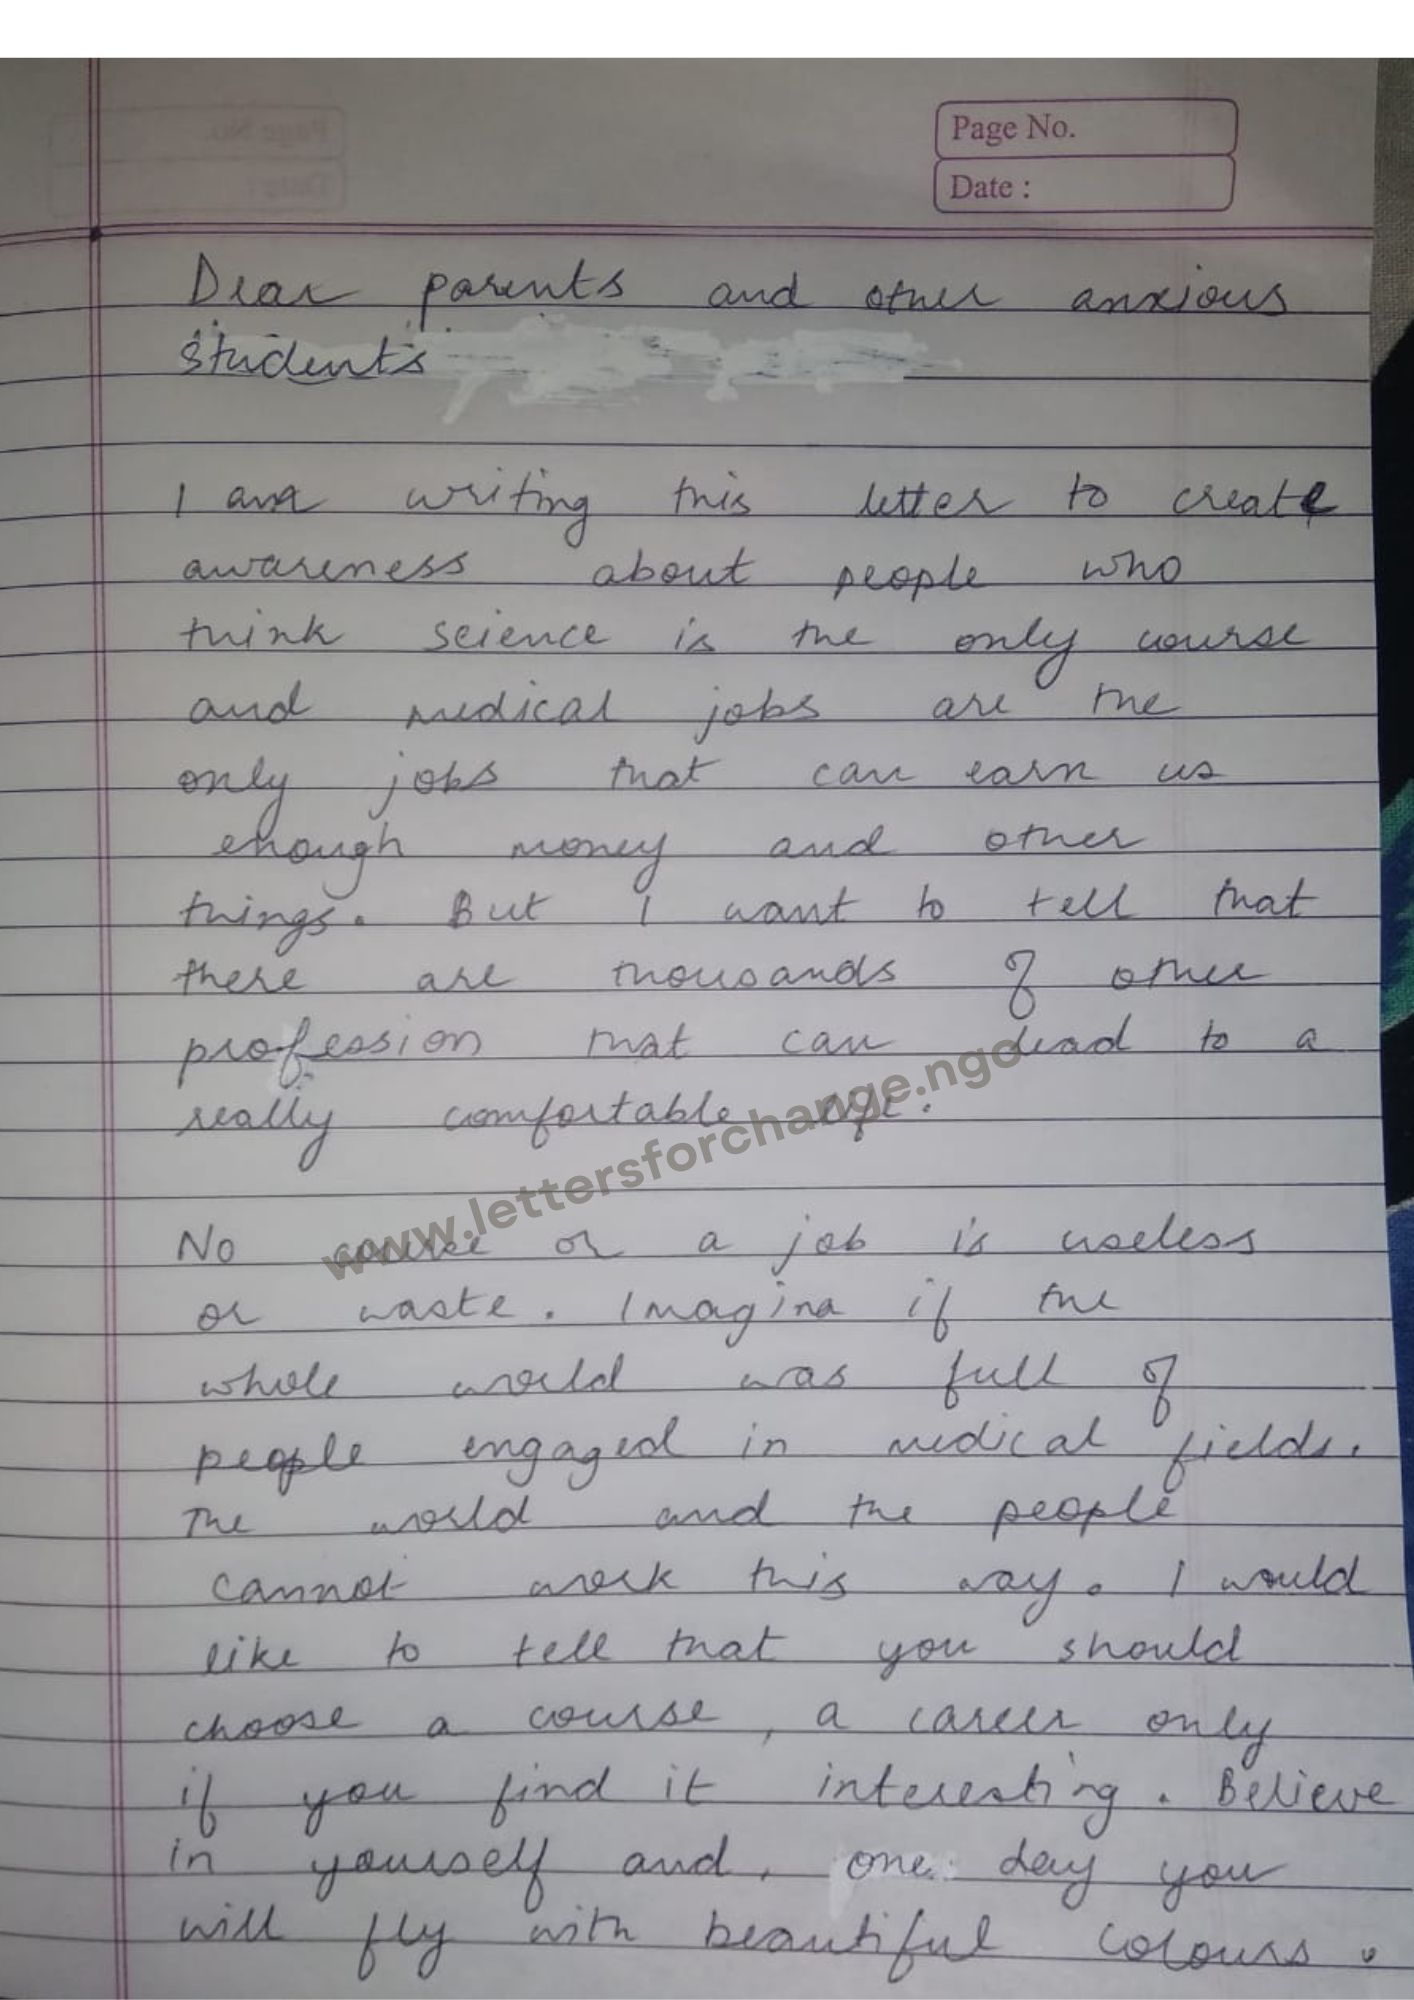 Page No.
Date :
Dear parents and other anxious
students
I am writing this letter to create
awareness about people who
think science is the only course
and medical jobs are the
only jobs that can earn us
enough money and other
things. But I want to tell that
there are thousands of other
profession that can lead to a
really comfortable life.
www.lettersforchange.ngo
No course or a job is useless
or waste. Imagina if the
whole world was full of
people engaged in medical fields.
The world and the people
cannot work this way. I would
like to tell that you should
choose a course, a career only
if you find it interesting. Believe
in yourself and, one day you
will fly with beautiful colours.